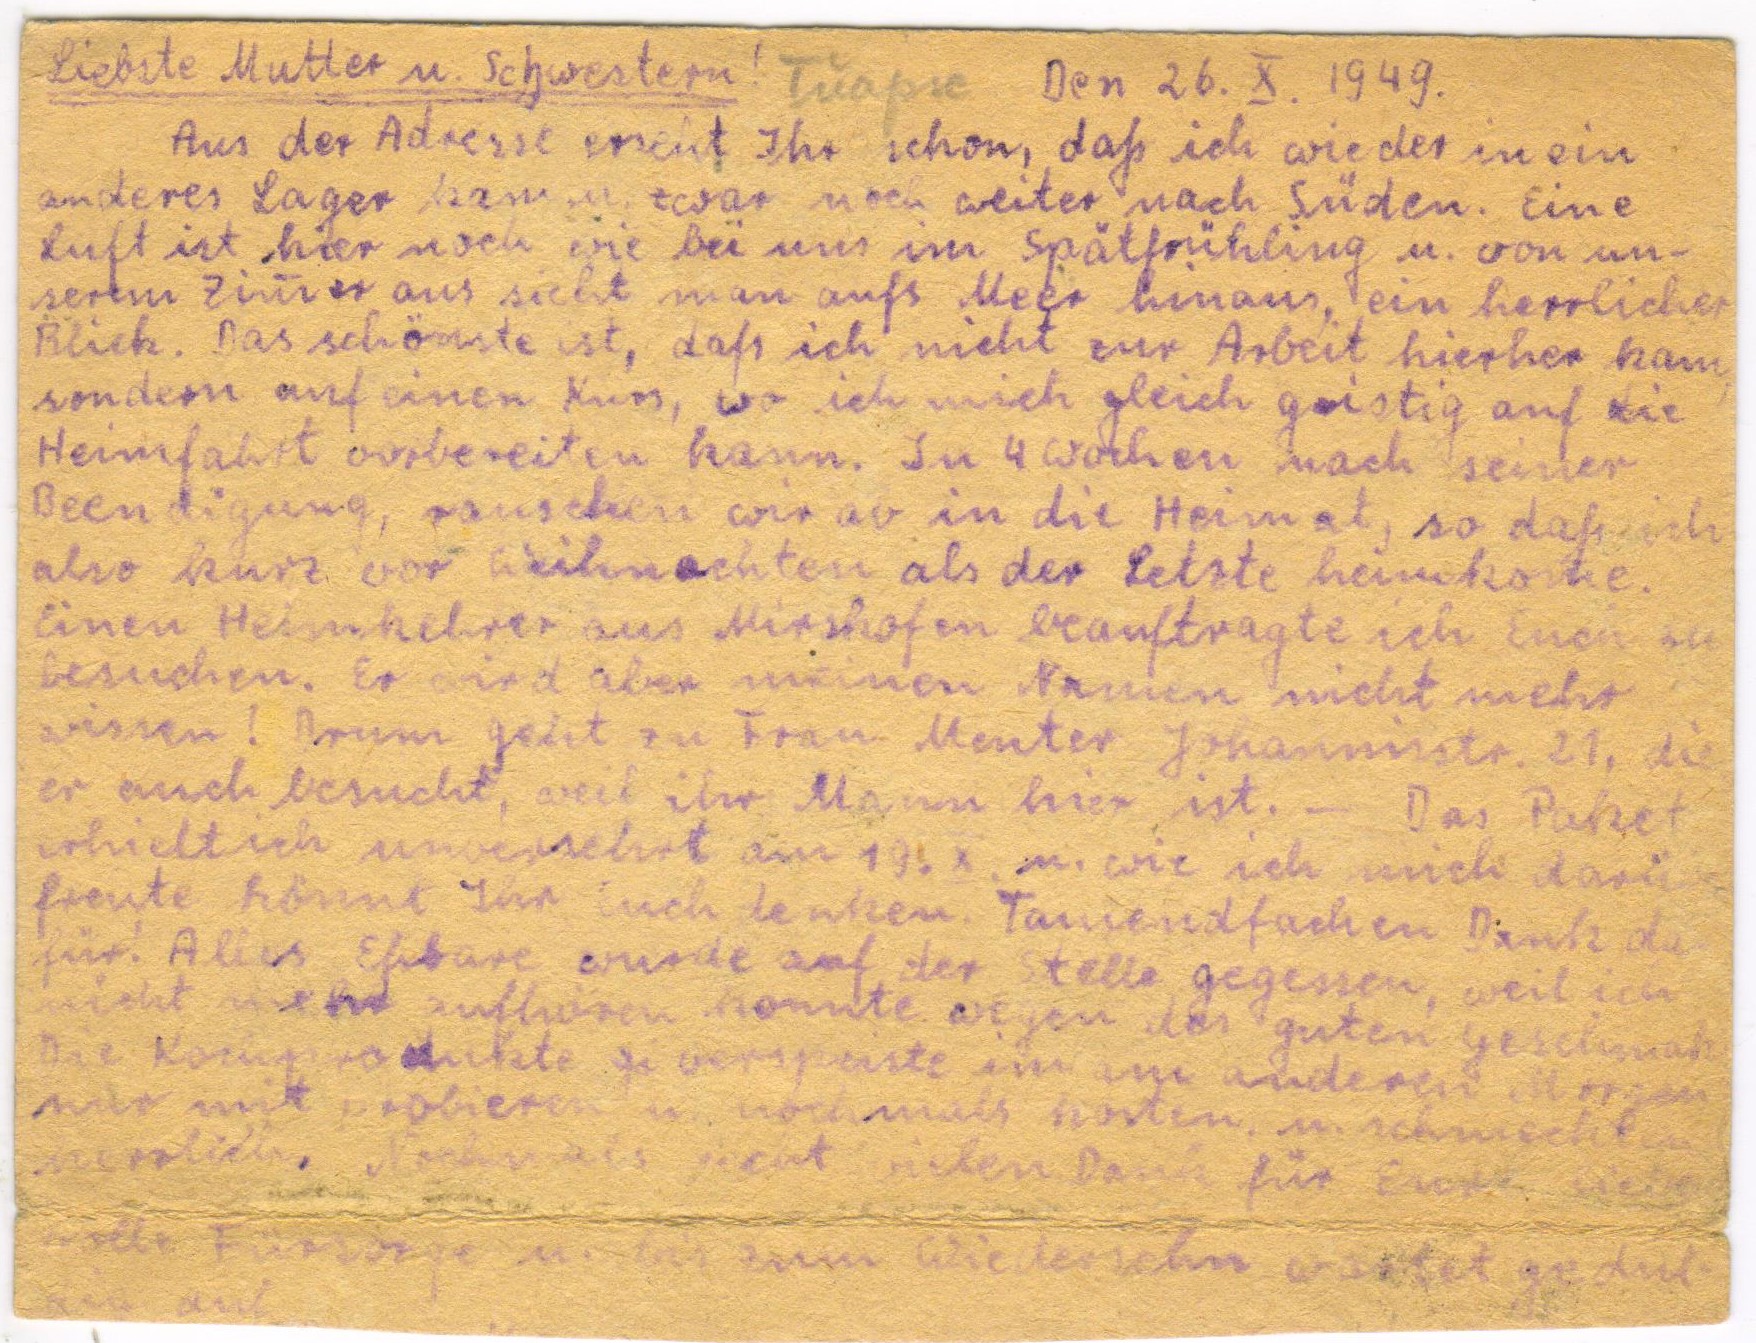 Liebste Mutter u. Schwestern! Tuapse Den 26. X. 1949.
Aus der Adresse erseht Ihr schon, daß ich wieder in ein
anderes Lager kam u. zwar noch weiter nach Süden. Eine
Luft ist hier noch wie bei uns im Spätfrühling u. von un-
serem Zim̄er aus sieht man aufs Meer hinaus, ein herrlicher
Blick. Das schönste ist, daß ich nicht zur Arbeit hierher kam,
sondern auf einen Kurs, wo ich mich gleich geistig auf die
Heimfahrt vorbereiten kann. In 4 Wochen nach seiner
Beendigung, rauschen wir ab in die Heimat, so daß ich
also kurz vor Weihnachten als der Letzte heimkome.
Einen Heimkehrer aus beauftragte ich Euch zu
besuchen. Er wird aber meinen Namen nicht mehr
wissen! Drum geht zu Frau Menter Johannisstr. 21, die
er auch besucht, weil ihr Mann hier ist. — Das Paket
erhielt ich unversehrt am 19. X. u. wie ich mich
freute könnt Ihr Euch denken. Tausendfachen Dank da-
für. Alles Eßbare wurde auf der Stelle gegessen, weil ich
nicht mehr aufhören konnte wegen des guten
Die Kochprodukte verspeiste am anderen Morgen
nur mit probieren u. nochmals kosten u. schmeckten
herrlich. Nochmals recht vielen Dank für Eure liebe-
volle Fürsorge u. bis zum Wiedersehn wartet gedul-
dig auf